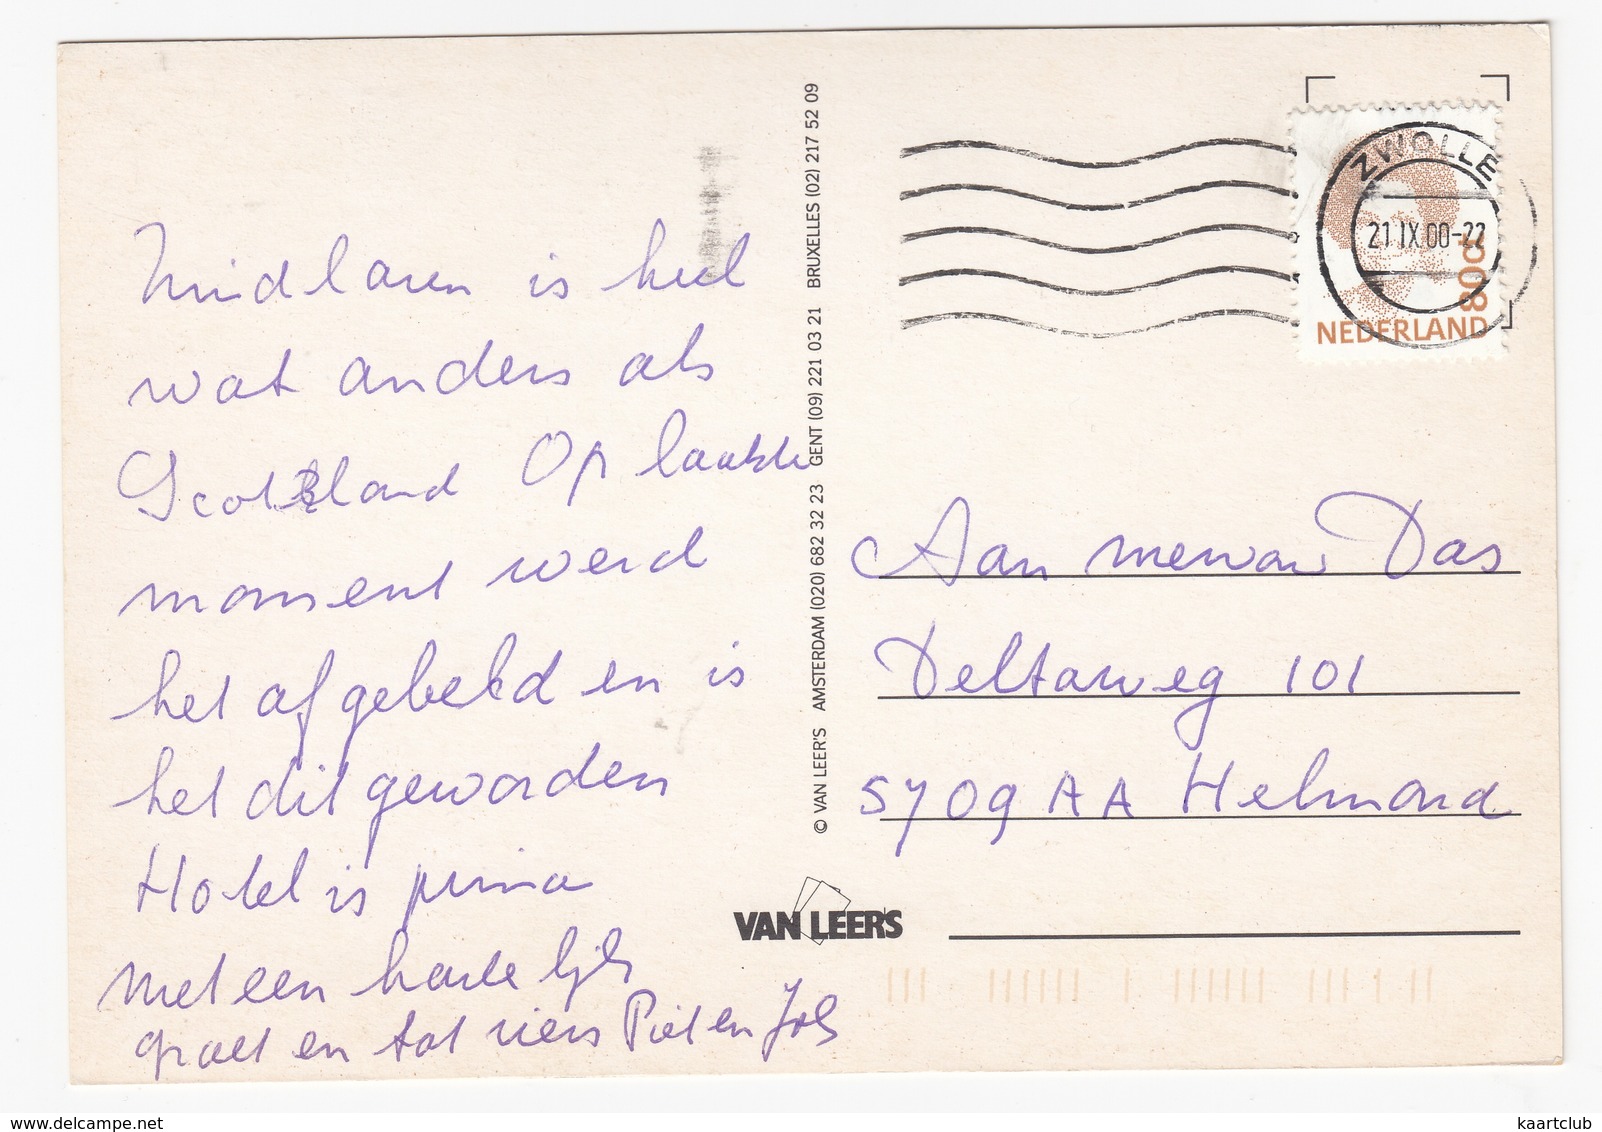 Zuidlaren is heel
wat anders als
Scotland Op laatste
moment werd
het afgebeld en is
het dit geworden
Hotel is prima
met een hartelijk
groet en tot ziens Piet en Jos
© VAN LEER'S AMSTERDAM (020) 682 32 23 GENT (09) 221 03 21 BRUXELLES (02) 217 52 09
VAN LEER'S
ZWOLLE
21 IX.00-22
80c
NEDERLAND
Aan mevrouw Das
Deltaweg 101
5709 AA Helmond
kaartclub
delcampe.net